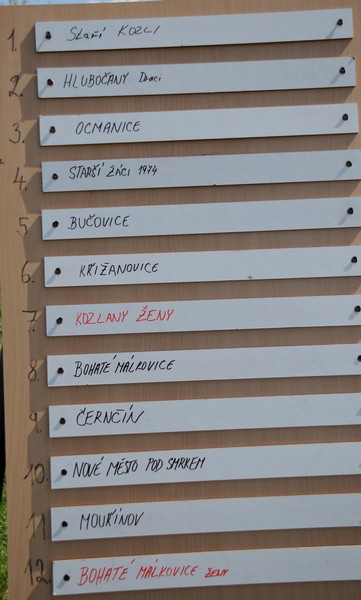 1. Staří KOZLI
2. HLUBOČANY Draci
3. OCMANICE
4. STARŠÍ ŽÁCI 1974
5. BUČOVICE
6. KŘIŽANOVICE
7. KOZLANY ŽENY
8. BOHATÉ MÁLKOVICE
9. ČERNČÍN
10. NOVÉ MĚSTO POD SMRKEM
11. MOUŘÍNOV
12. BOHATÉ MÁLKOVICE ŽENY